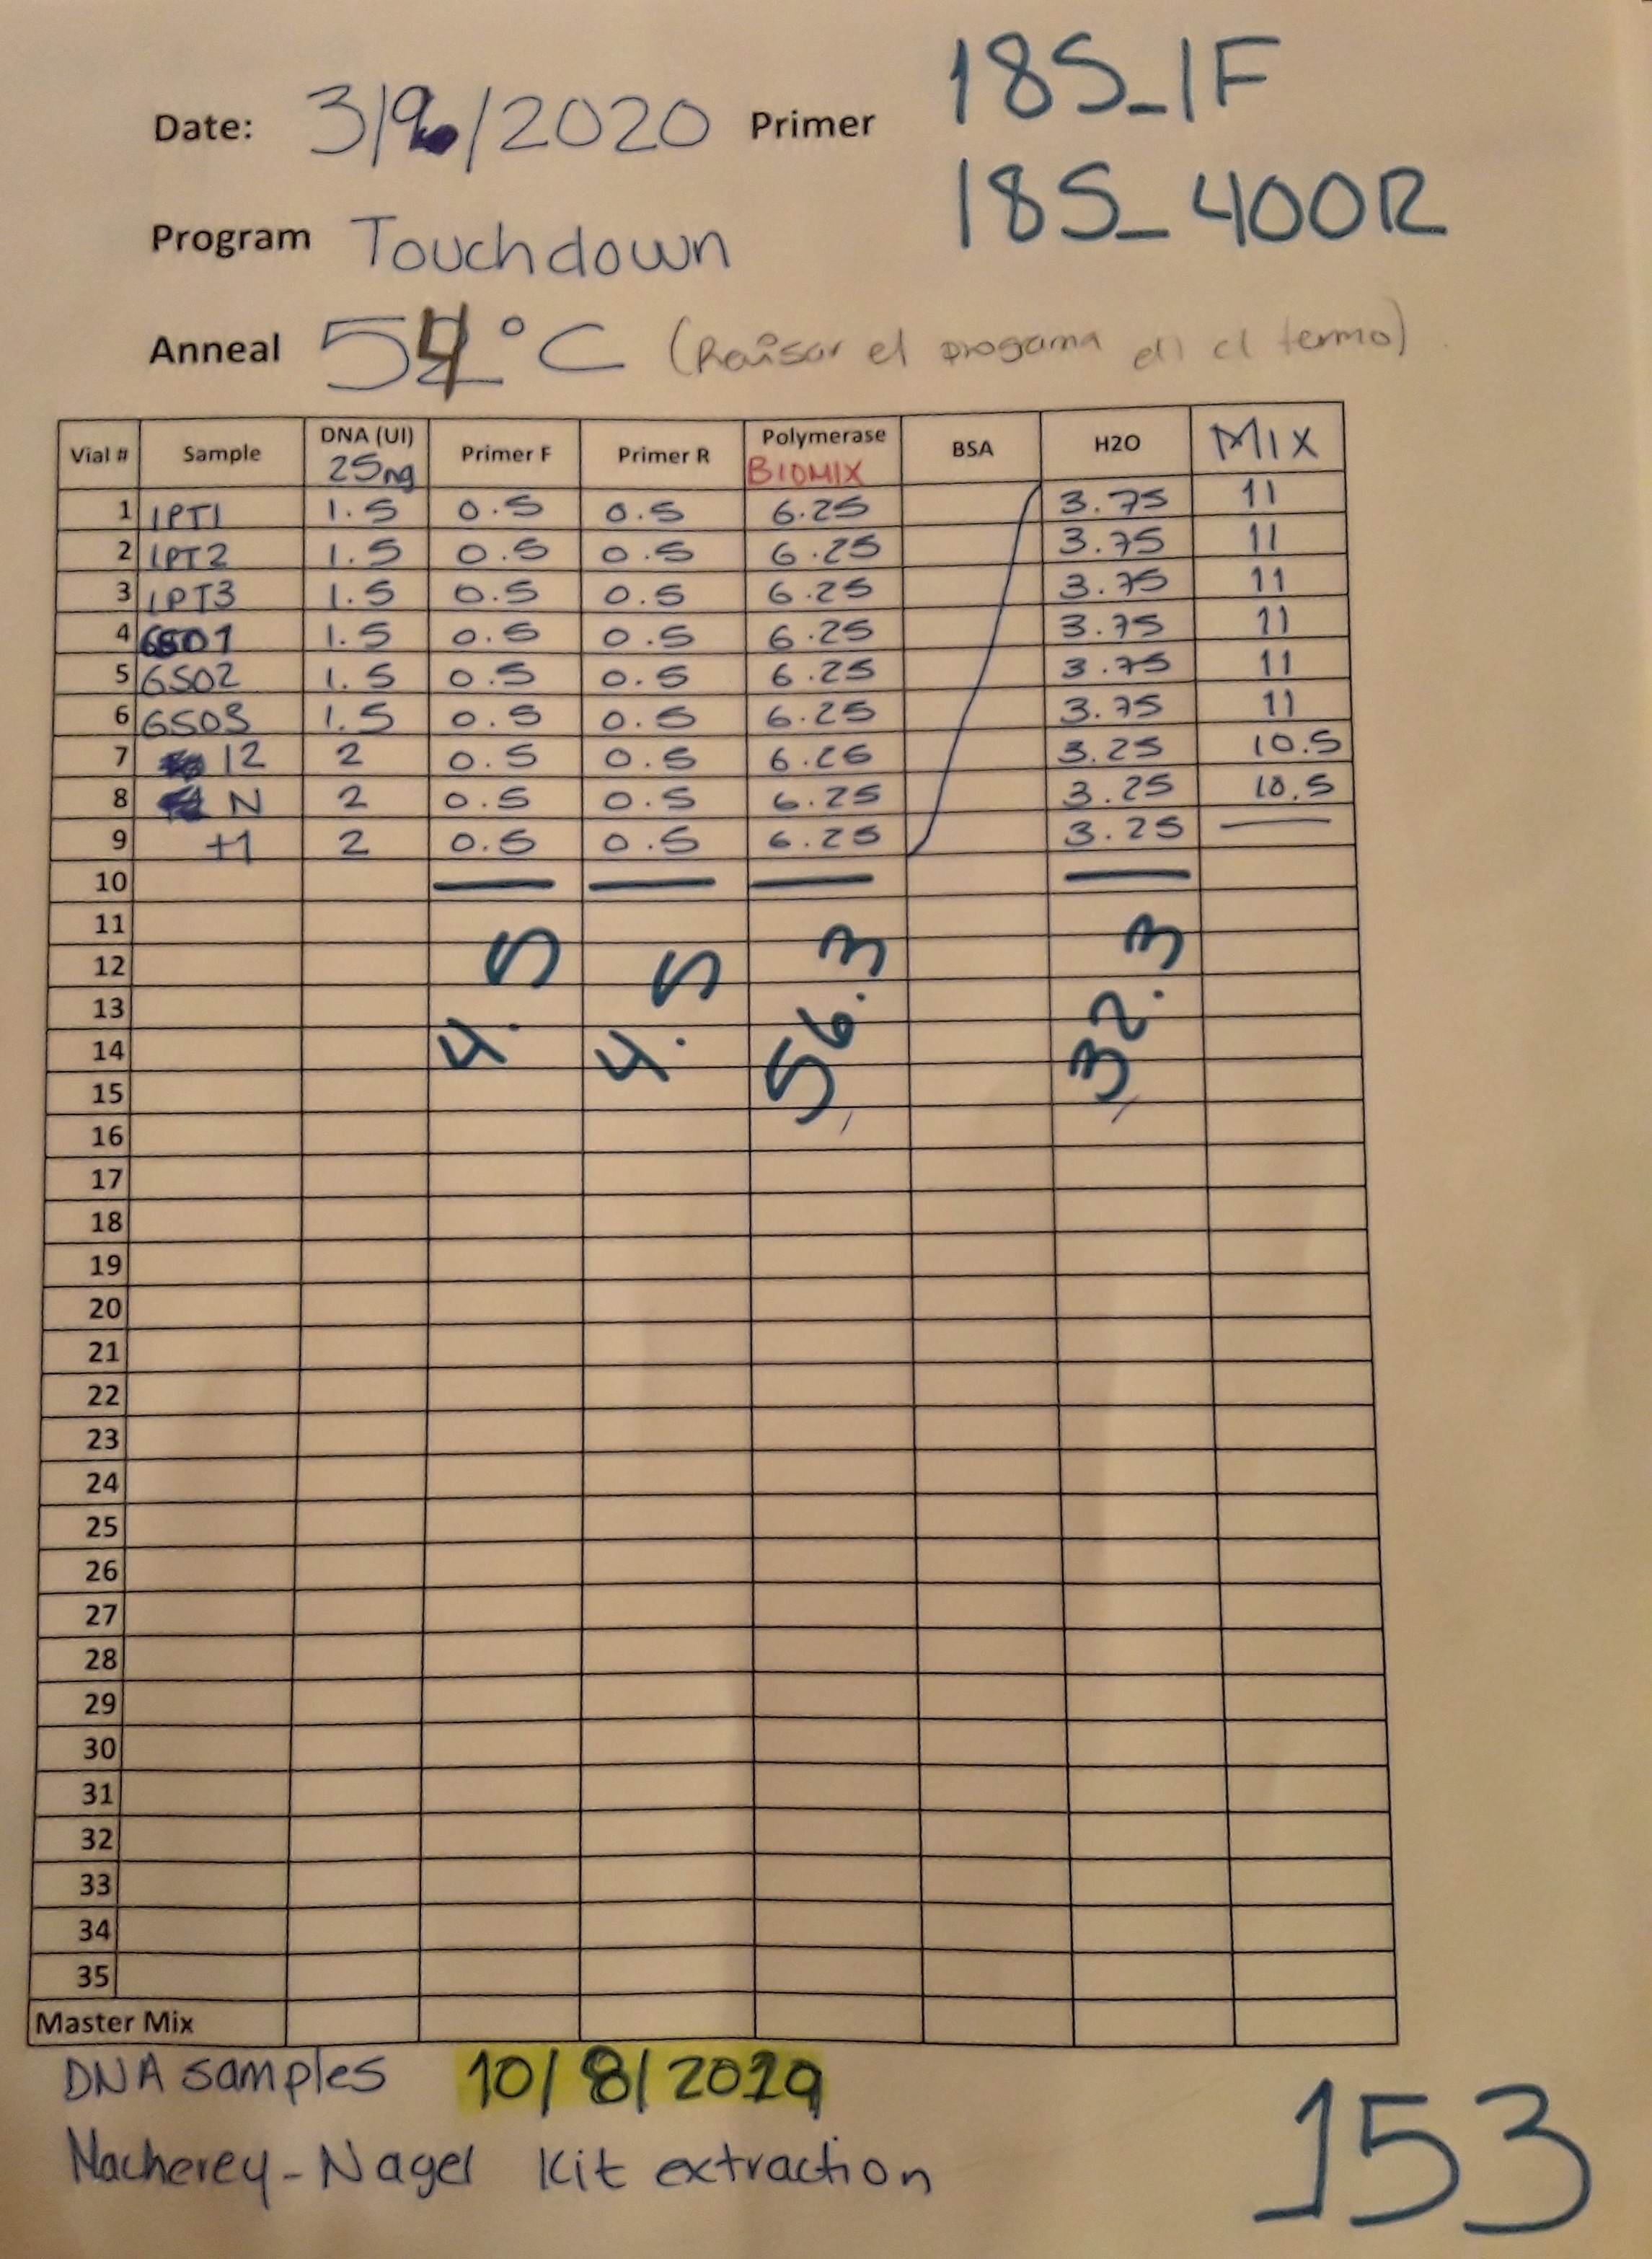 18S_1F
Date: 3/9/2020 Primer
18S_400R
Program Touchdown
Anneal 54°C (Revisar el progama el termo)
Vial # Sample DNA (Ul) 25ng Primer F Primer R Polymerase BIOMIX BSA H2O MIX
1 1PT1 1.5 0.5 0.5 6.25 3.75 11
2 1PT2 1.5 0.5 0.5 6.25 3.75 11
3 1PT3 1.5 0.5 0.5 6.25 3.75 11
4 6SO1 1.5 0.5 0.5 6.25 3.75 11
5 6SO2 1.5 0.5 0.5 6.25 3.75 11
6 6SO3 1.5 0.5 0.5 6.25 3.75 11
7 12 2 0.5 0.5 6.25 3.25 10.5
8 N 2 0.5 0.5 6.25 3.25 10.5
9 +1 2 0.5 0.5 6.25 3.25
10
11
12
13
14
15
4.5 4.5 56.3 32.3
16
17
18
19
20
21
22
23
24
25
26
27
28
29
30
31
32
33
34
35
Master Mix
DNA samples 10/8/2019
Macherey-Nagel Kit extraction
153